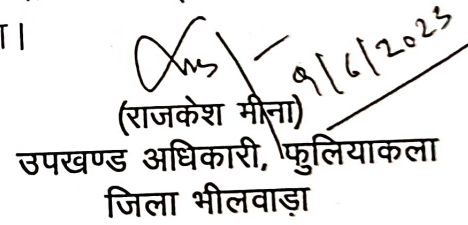 ा।
9/6/2023
(राजकेश मीना)
उपखण्ड अधिकारी, फुलियाकला
जिला भीलवाड़ा